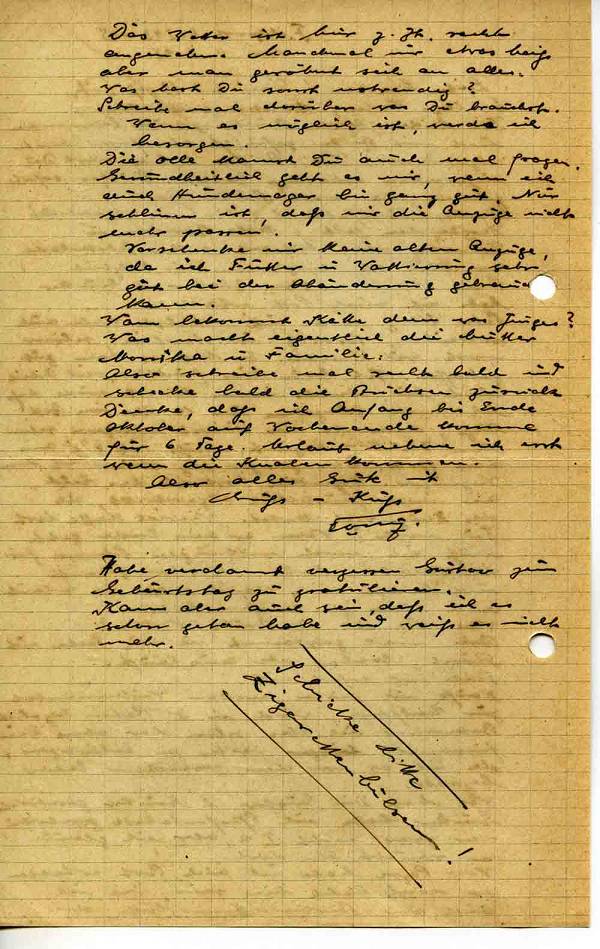 Das Wetter ist hier z. Zt. recht
angenehm. Manchmal nur etwas heiß
aber man gewöhnt sich an alles.
Was hast Du sonst notwendig?
Schreibe mal darüber was Du brauchst.
Wenn es möglich ist, werde ich
besorgen.
Die alle kannst Du auch mal fragen.
Gesundheitlich geht es mir, wenn ich
auch Hundemager bin ganz gut. Nur
schlimm ist, daß mir die Anzüge nicht
mehr passen.
Verschenke mir keine alten Anzüge,
da ich Futter u Wattierung sehr
gut bei der Abänderung gebrauchen
kann.
Wann bekommt Käthe denn was Junges?
Was macht eigentlich die Mutter
Monika u Familie.
Also schreibe mal recht bald und
schicke bald die Büchsen zurück
Denke, daß ich Anfang bis Ende
Oktober auf Wochenende komme
für 6 Tage. Urlaub nehme ich erst
wenn die kommen.
Also alles Gute
Gruß - Kuß
Habe verdammt vergessen Gustav zum
Geburtstag zu gratulieren.
Kann aber auch sein, daß ich es
schon getan habe und weiß es nicht
mehr.
Schicke bitte
Zigarettenhülsen!